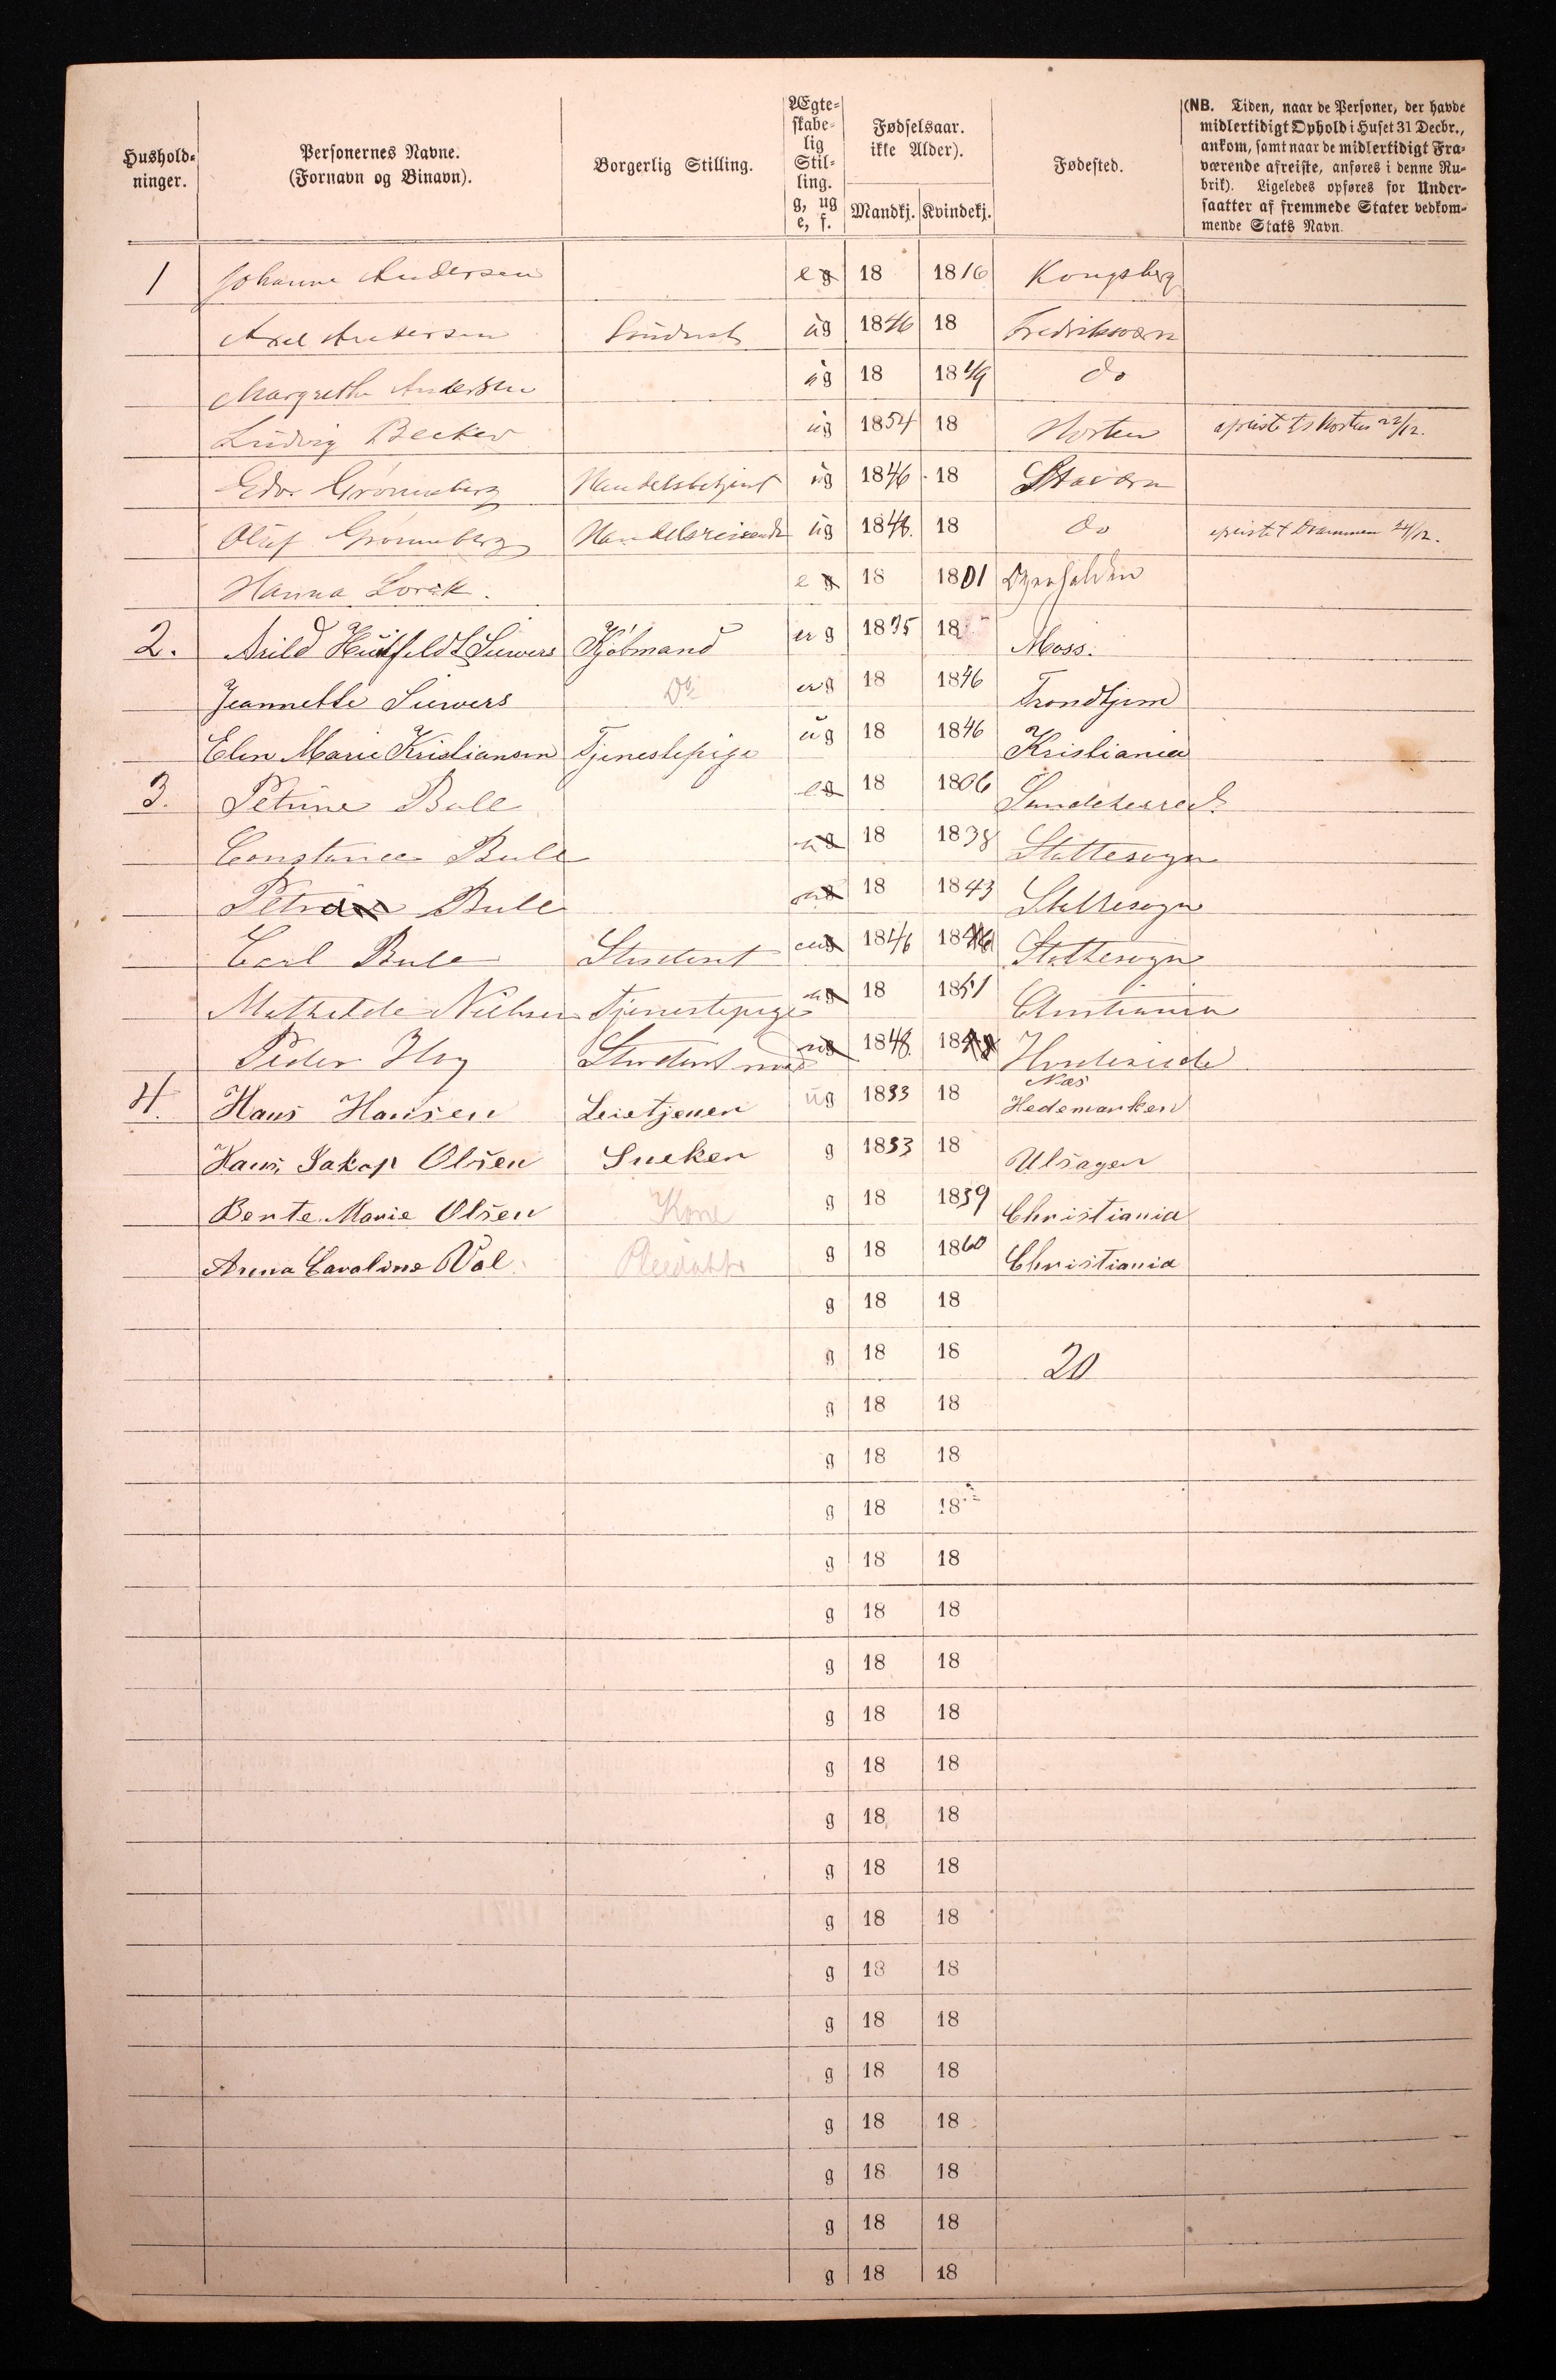 Hushold-
ninger.
Personernes Navne.
(Fornavn og Binavn).
Borgerlig Stilling.
Ægte-
skabe-
lig
Stil-
ling.
g, ug
e, f.
Fødselsaar.
ikke Alder).
Mandkj. Kvindekj.
Fødested.
(NB. Tiden, naar de Personer, der havde
midlertidigt Ophold i Huset 31 Decbr.,
ankom, samt naar de midlertidigt Fra-
værende afreiste, anføres i denne Ru-
brik). Ligeledes opføres for Under-
saatter af fremmede Stater vedkom-
mende Stats Navn.
1 Johanne Andersen e 18 1816 Kongsberg
Axel Andersen Student ug 1846 18 Fredriksværn
Margrethe Andersen ug 18 1849 do
Ludvig Becker ug 1854 18 Horten afreist til Horten 22/12.
Edv. Grønneberg Handelsbetjent ug 1846 18 Stavern
Oluf Grønneberg Handelsreisende ug 1848. 18 do afreist t Drammen 24/12.
Hanna Lorck. e 18 1801
2. Arild Huitfeldt Siewers Kjøbmand g 1835 18 Moss.
Jeannette Siewers g 18 1846 Trondhjem
Elen Marie Kristiansen Tjenestepige ug 18 1846 Kristiania
3. Petrine Bull e 18 1806 Sandeherred
Constance Bull 18 1838 Slattesogn
Bull 18 1843 Slattesogn
Carl Bull Student ug 1846 18 Slattesogn
Mathilde Nielsen Tjenestepige ug 18 1851 Christiania
Peder Student ug 1848. 18
4. Hans Hansen Leietjener ug 1833 18 Næs
Hedemarken
Hans Jakop Olsen Sneker g 1833 18 Ulsager
Bente Marie Olsen Kone g 18 1839 Christiania
Anna Caroline Dal. Pleiedatter g 18 1860 Christiania
g 18 18
g 18 18 20
g 18 18
g 18 18
g 18 18
g 18 18
g 18 18
g 18 18
g 18 18
g 18 18
g 18 18
g 18 18
g 18 18
g 18 18
g 18 18
g 18 18
g 18 18
g 18 18
g 18 18
g 18 18